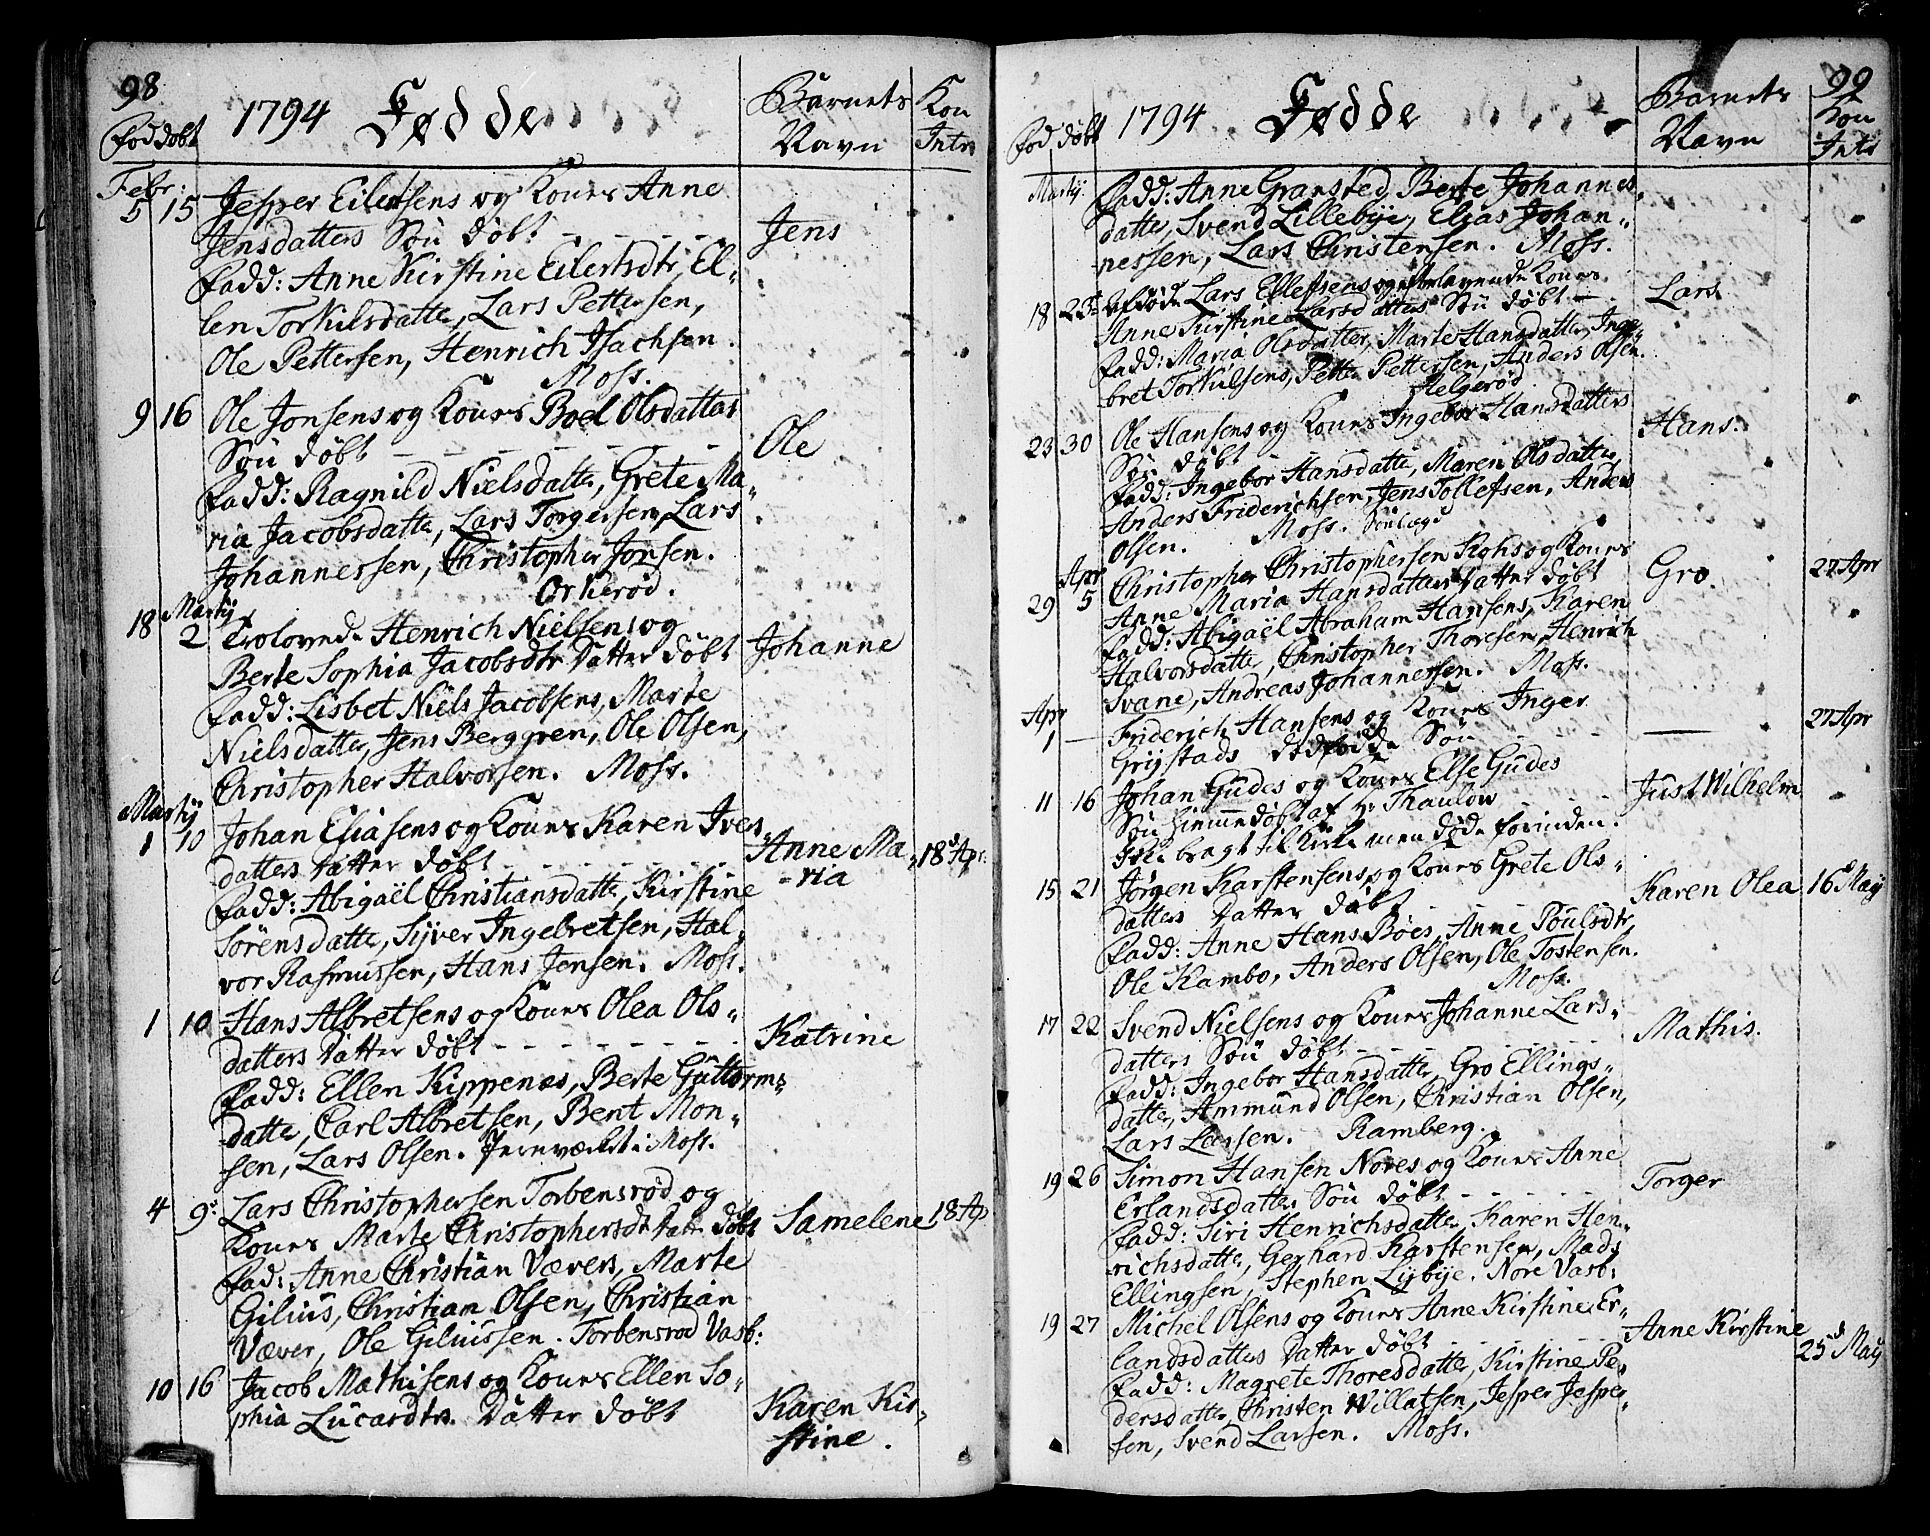 98
1794 Fødde
Barnets Navn
Kon Intr
Fød døbt
Febr:
5 15 Jesper Eilertsens og Kones Anne
Jensdatters Søn døbt - - - - Jens
Fadd: Anne Kirstine Eilertsdtr, El-
len Torkilsdatte, Lars Pettersen,
Ole Pettersen, Henrich Isachsen.
Moss.
9 16 Ole Jonsens og Kones Boel Olsdatters
Søn døbt - - - - - - Ole
Fadd: Ragnild Nielsdatte, Grete Ma-
ria Jacobsdatte, Lars Torgersen, Lars
Johannessen, Christopher Jonsen.
Orkerød.
18 Martij
2 Trolovede Henrich Nielsens og
Berte Sophia Jacobsdtr Datter døbt Johanne
Fadd: Lisbet Niels Jacobsens, Marte
Nielsdatte, Jens Berggren, Ole Olsen,
Christopher Halvorsen. Moss.
Martij
1 10 Johan Eliasens og Kones Karen Ives-
datters Datter døbt - - - - - Anne Ma- 18d Apr.
Fadd: Abigaël Christiansdatte, Kirstine -ria
Sørensdatte, Syver Ingebretsen, Hal-
vor Rasmussen, Hans Jensen. Moss.
1 10 Hans Albretsens og Kones Olea Ols-
datters Datter døbt - - - - - - Katrine
Fadd: Ellen Kippenes, Berte Guttorms-
datte, Carl Albretsen, Bent Mon-
sen, Lars Olsen. Jernværket i Moss.
4 9 Lars Christophersen Torbensrød og
Kones Marte Christophersdt Datte døbt Samelene 18 Ap
Fad: Anne Christian Vævers, Marte
Gilius, Christian Olsen, Christian
Væver, Ole Giliussen. Torbensrød Vasb:
10 16 Jacob Mathisens og Kones Ellen So-
phia Lucasdtrs. Datter døbt Karen Kir-
stine.
99
1794 Fødde
Barnets Navn
Kon Intr
Fød døbt
Martij. Fadd: Anne Gransted, Berte Johannes-
datte, Svend Lillebye, Elias Johan-
nessen, Lars Christensen. Moss.
18 23 Afdøde Lars Ellefsens og efterlevende Kones
Anne Kirstine Larsdatters Søn døbt - Lars
Fadd: Maria Olsdatter, Marte Hansdatte, Inge-
bret Torkilsens, Pette Pettersen, Anders Olsen.
Helgerød
23 30 Ole Hansens og Kones Ingebor Hansdatters
Søn døbt - Hans.
Fadd: Ingebor Hansdatte, Maren Olsdatte,
Anders Friderichsen, Jens Tollefsen, Anders
Olsen. Moss.
29 Apr 5 Christopher Christophersen Kohs og Kones
Anne Maria Hansdatters Datter døbt Gro. 27 Apr
Fadd: Abigaël Abraham Hansens, Karen
Halvorsdatte, Christopher Thoresen, Henrich
Svane, Andreas Johannessen. Moss.
Apr
1 - Friderich Hansens og Kones Inger
Grystads dødfødde Søn - - - 27 Apr
11 16 Johan Gudes og Kones Else Gudes
Søn hiemmedøbt af Hr Thaulow - - - Just Wilhelm
Ikke bragt til kirke men døde forinden.
15 21 Jørgen Karstensens og Kones Grete Ols-
datters Datter døbt - - - Karen Olea 16d Maij
Fadd: Anne Hans Bøes, Anne Poulsdtr,
Ole Kambo, Anders Olsen, Ole Tostensen.
Moss.
17 22 Svend Nielsens og Kones Johanne Lars-
datters Søn døbt - - - Mathis.
Fadd: Ingebor Hansdatte, Gro Ellings-
datte, Ammund Olsen, Christian Olsen,
Lars Larsen. Ramberg.
19 26 Simon Hansen Nores og Kones Anne
Erlandsdatters Søn døbt - - - Torger
Fadd: Siri Henrichsdatte, Karen Hen-
richsdatte, Gerhard Karstensen, Mads
Ellingsen, Stephen Lybye. Nore Vasb:
19 27 Michel Olsens og Kones Anne Kirstine Er-
landsdatters Datter døbt - - - Anne Kirstine 25d Maij
Fadd: Magrete Thoresdatte, Kirstine Pe-
dersdatte, Christen Willatsen, Jesper Jesper-
sen, Svend Larsen. Moss.